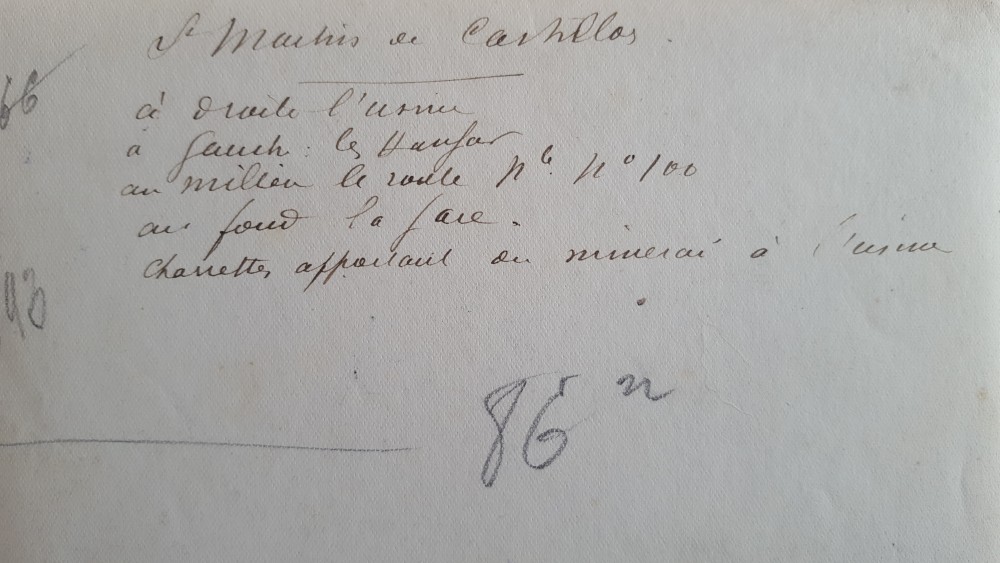 St Martin de Castillos.
66
à droite l'usine
à gauch: les Hangar
au milieu le route Nle. No 100
au fond la gare.
charrettes apportant du minerai à l'usine
93
86 n